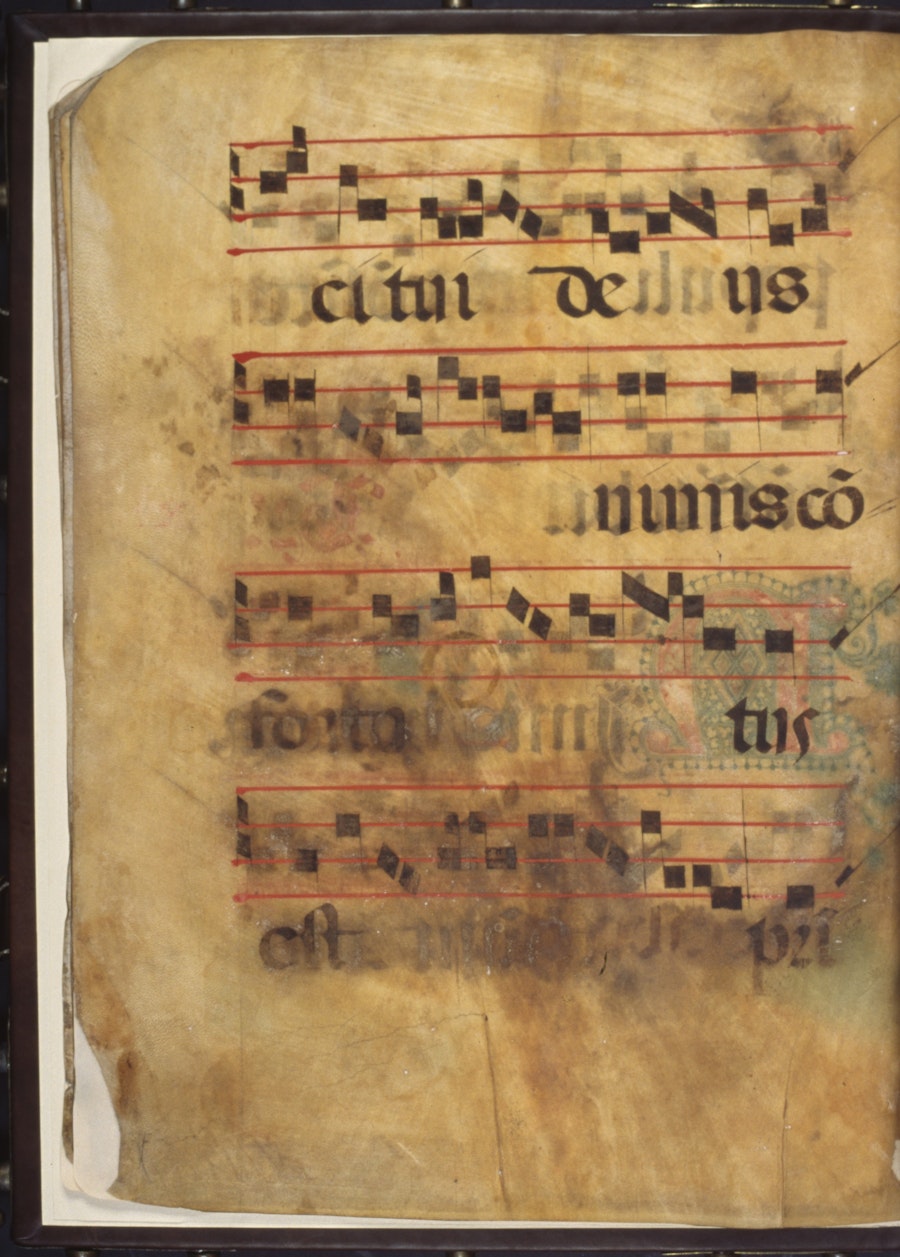 ci tui de us
nimis cō
forta tus
est prī